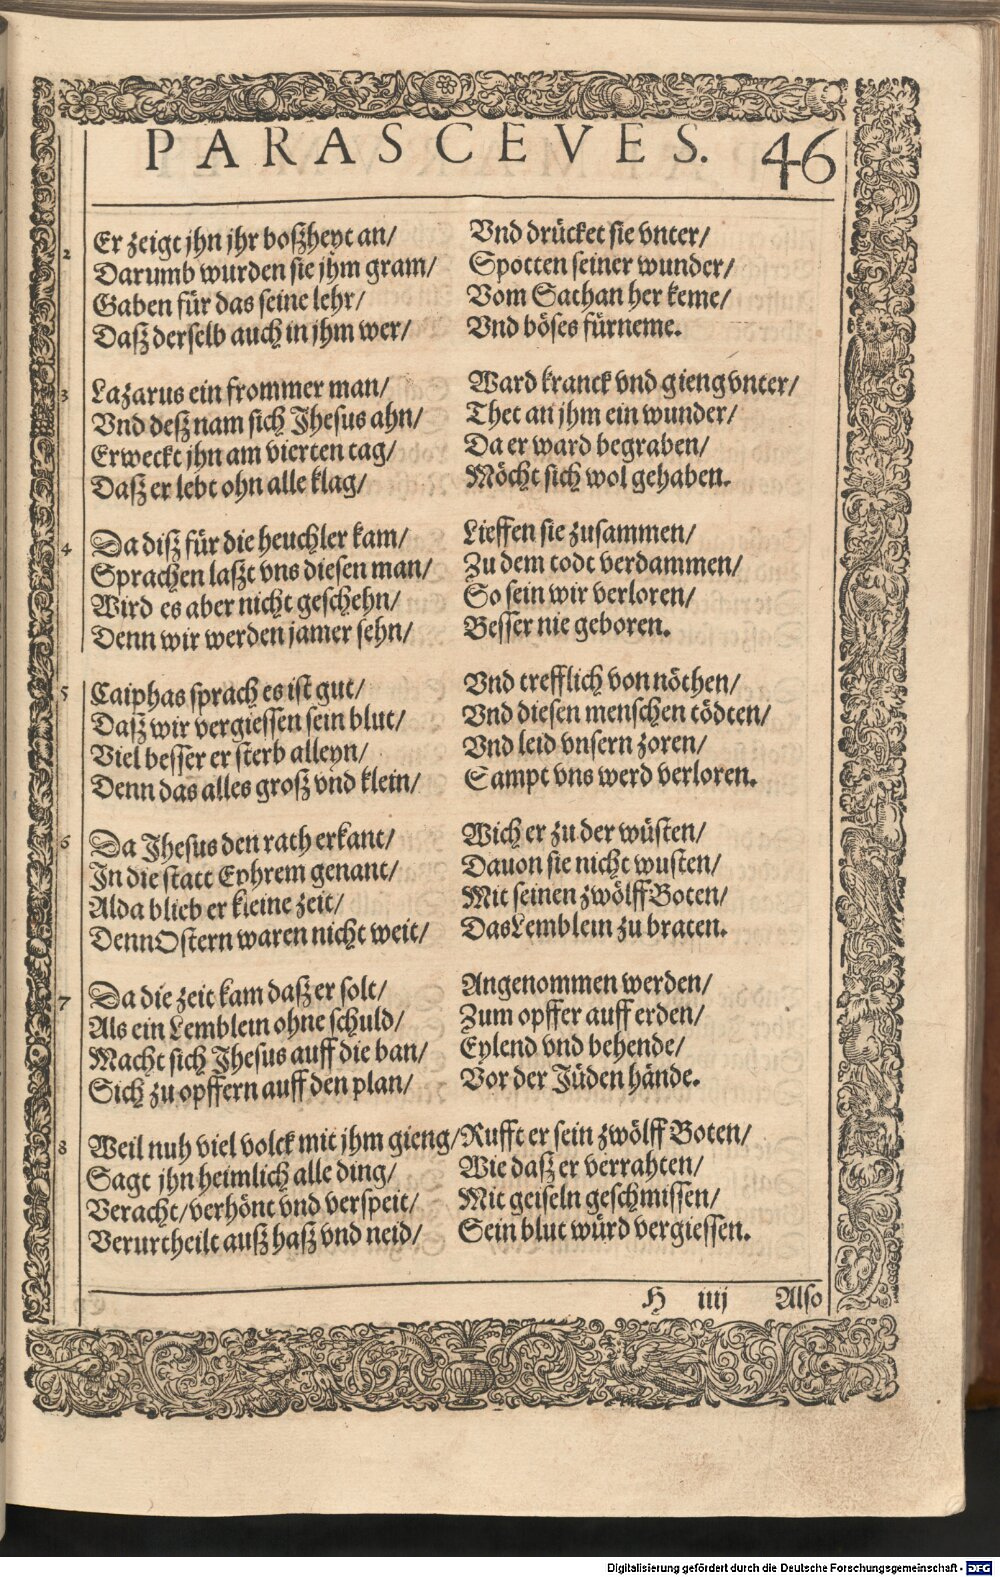 PARASCEVES. 46
2 Er zeigt jhn jhr boßheyt an/ Vnd drücket sie vnter/
Darumb wurden sie jhm gram/ Spotten seiner wunder/
Gaben für das seine lehr/ Vom Sathan her keme/
Daß derselb auch in jhm wer/ Vnd böses fürneme.
3 Lazarus ein frommer man/ Ward kranck vnd gieng vnter/
Vnd deß nam sich Jhesus ahn/ Thet an jhm ein wunder/
Erweckt jhn am vierten tag/ Da er ward begraben/
Daß er lebt ohn alle klag/ Möcht sich wol gehaben.
4 Da diß für die heuchler kam/ Lieffen sie zusammen/
Sprachen laßt vns diesen man/ Zu dem todt verdammen/
Wird es aber nicht geschehn/ So sein wir verloren/
Denn wir werden jamer sehn/ Besser nie geboren.
5 Caiphas sprach es ist gut/ Vnd trefflich von nöthen/
Daß wir vergiessen sein blut/ Vnd diesen menschen tödten/
Viel besser er sterb alleyn/ Vnd leid vnsern zoren/
Denn das alles groß vnd klein/ Sampt vns werd verloren.
6 Da Jhesus den rath erkant/ Wich er zu der wüsten/
In die statt Ephrem genant/ Dauon sie nicht wusten/
Alda blieb er kleine zeit/ Mit seinen zwölff Boten/
Denn Ostern waren nicht weit/ Das Lemblein zu braten.
7 Da die zeit kam daß er solt/ Angenommen werden/
Als ein Lemblein ohne schuld/ Zum opffer auff erden/
Macht sich Jhesus auff die ban/ Eylend vnd behende/
Sich zu opffern auff den plan/ Vor der Jüden hände.
8 Weil nuh viel volck mit jhm gieng/ Rufft er sein zwölff Boten/
Sagt jhn heimlich alle ding/ Wie daß er verrahten/
Veracht/ verhönt vnd verspeit/ Mit geiseln geschmissen/
Verurtheilt auß haß vnd neid/ Sein blut würd vergiessen.
H iiij Also
Digitalisierung gefördert durch die Deutsche Forschungsgemeinschaft - DFG